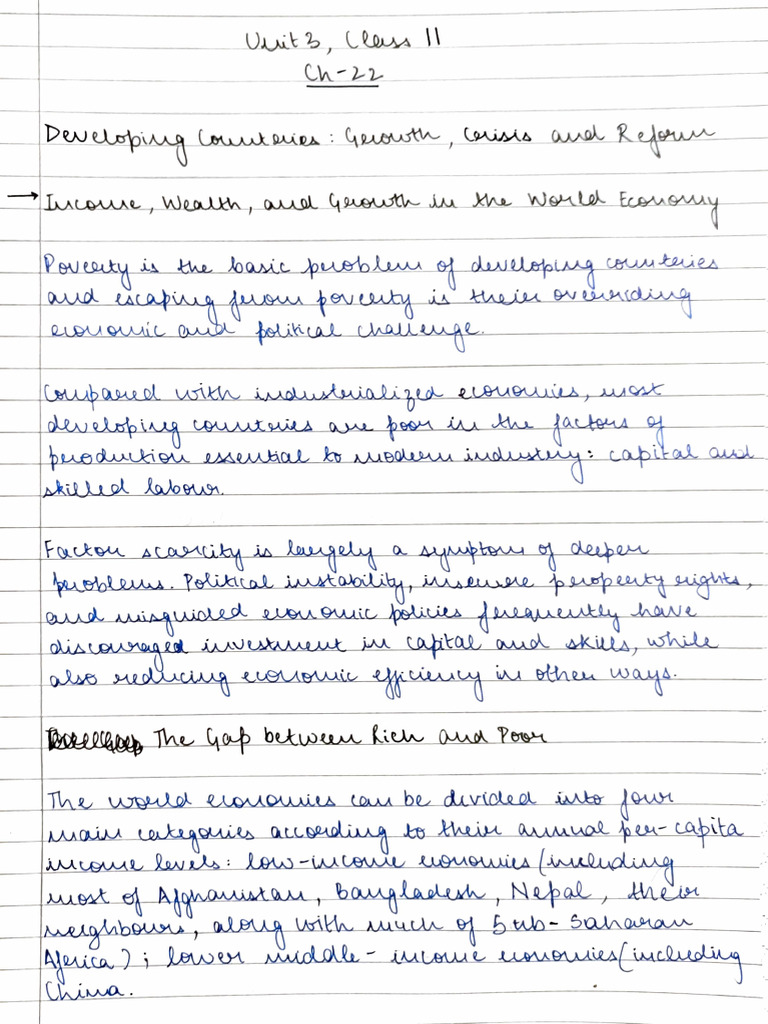 Unit 3, Class 11
Ch-22
Developing Countries: Growth, Crisis and Reform
→ Income, Wealth, and Growth in the World Economy
Poverty is the basic problem of developing countries
and escaping from poverty is their overriding
economic and political challenge.
Compared with industrialized economies, most
developing countries are poor in the factors of
production essential to modern industry: capital and
skilled labour.
Factor scarcity is largely a symptom of deeper
problems. Political instability, insecure property rights,
and misguided economic policies frequently have
discouraged investment in capital and skills, while
also reducing economic efficiency in other ways.
The Gap between Rich and Poor
The world economies can be divided into four
main categories according to their annual per-capita
income levels: low-income economies (including
most of Afghanistan, Bangladesh, Nepal, their
neighbours, along with much of Sub-Saharan
Africa); lower middle-income economies (including
China.